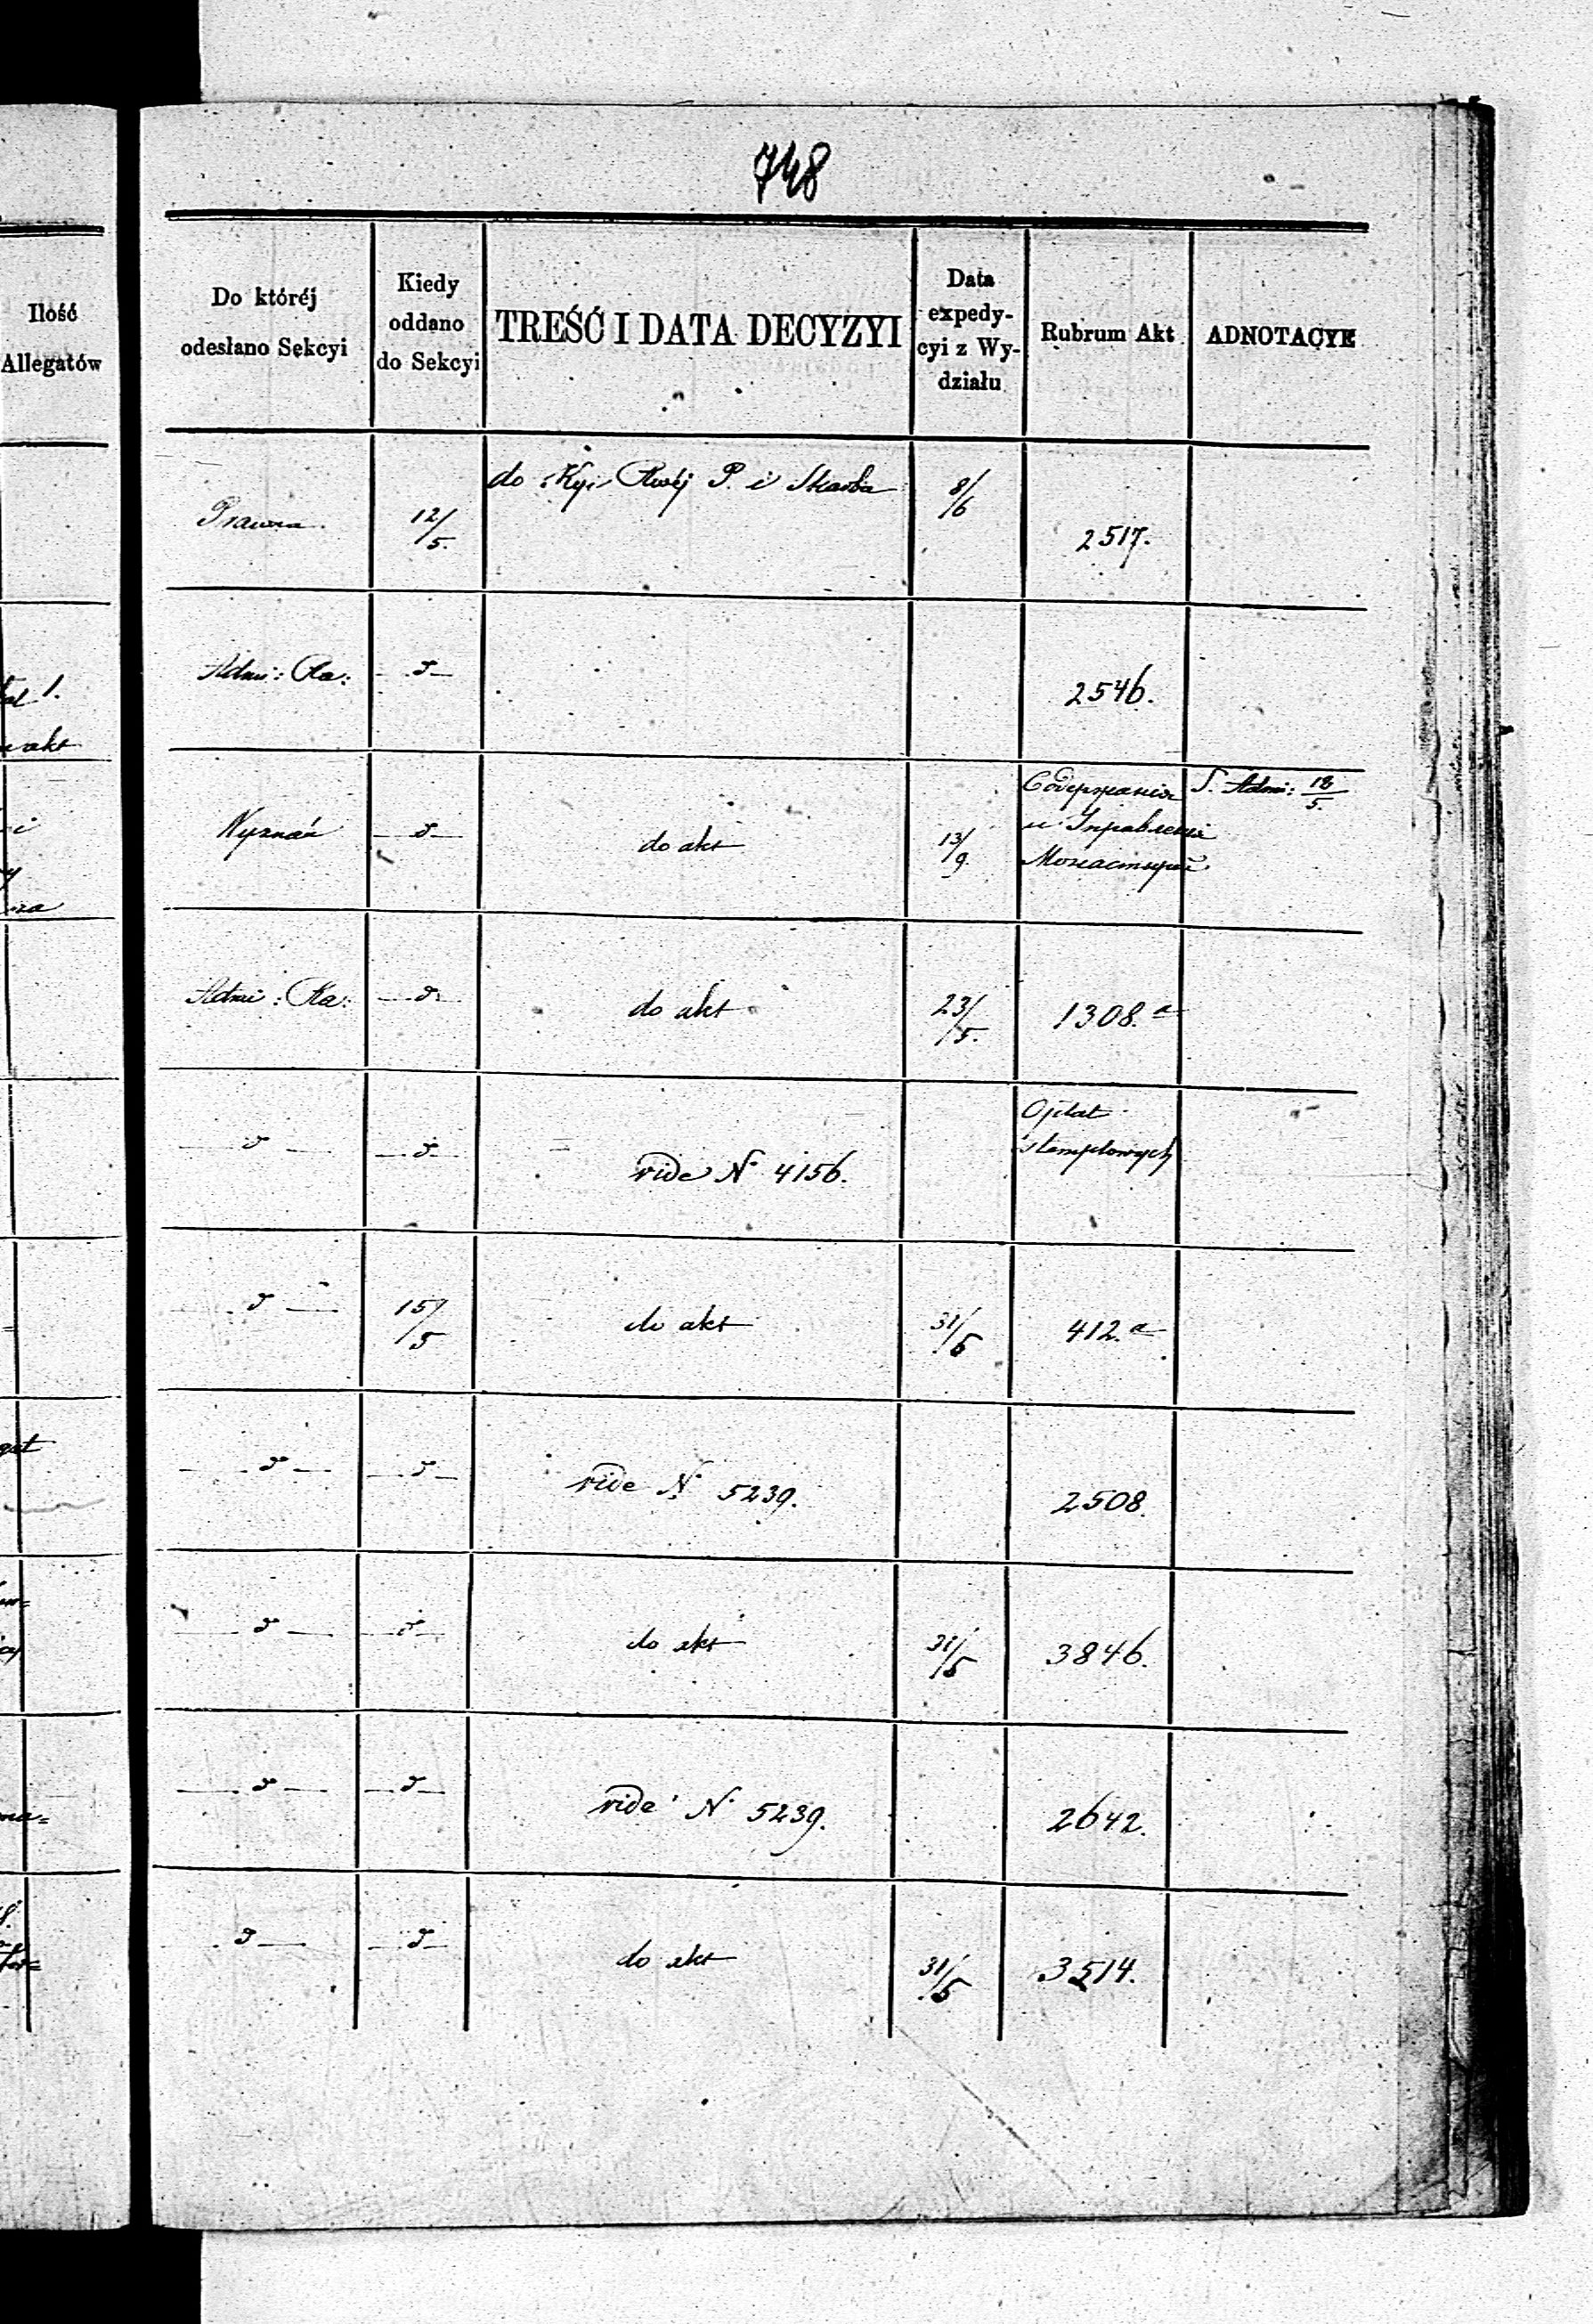 748
Ilość
Allegatów
Do któréj
odesłano Sekcyi
Kiedy
oddano
do Sekcyi
TREŚĆ I DATA DECYZYI
Data
expedy-
cyi z Wy-
działu
Rubrum Akt
ADNOTACYE
Prawna 12/5. do P. i Skarba 8/6 2517.
Admi: Ka: d 2546.
1.
akt
Wyznań d do akt 13/9. Содержания S. Admi: 18/5.
и Управления
Монастырей
na
Admi: Ka: d do akt 23/5. 1308.a
d d vide N 4156. Opłat
stemplowych
d 15/5 do akt 31/5 412.a
d d vide N. 5239. 2508.
d d do akt 31/5 3846.
d d vide N. 5239. 2642.
d d do akt 31/5 3514.